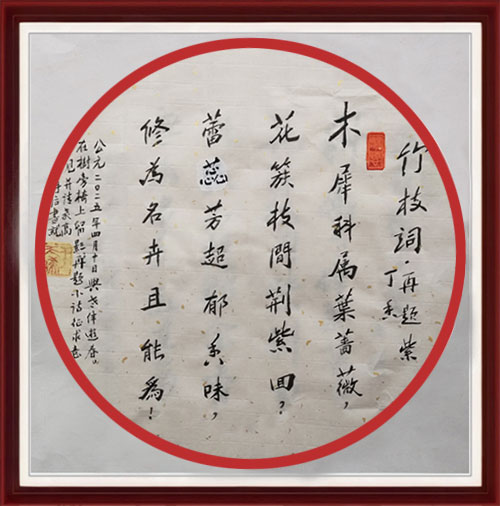 竹枝詞·再題紫
丁香
木犀科属葉薔薇，
花簇枝間荆紫回？
蕾蕊芳超郁香味，
修為名卉且能為！
公元二〇二五年四月十日與老伴遊春。
在樹旁椅上留影 題小詩征求意
見并請